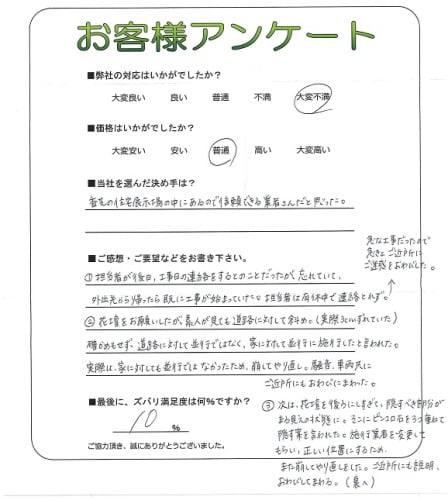 お客様アンケート
■弊社の対応はいかがでしたか?
大変良い 良い 普通 不満 大変不満
■価格はいかがでしたか?
大変安い 安い 普通 高い 大変高い
■当社を選んだ決め手は?
の住宅展示場の中にあるので信頼できる業者さんだと思った。
■ご感想・ご要望などをお書き下さい。
①担当者が後日、工事日の連絡をするとのことだったが、忘れていて、
外出先から帰ったら既に工事が始まっていた。担当者は有休中で連絡とれず。
急な工事だったので
急きょご近所に
ご迷惑をおわびした。
②花壇をお願いしたが、素人が見ても道路に対して斜め。(実際ずれていた)
確かめもせず、道路に対して並行ではなく、家に対して並行に施行したと言われた。
実際は、家に対しても並行ではなかったため、崩してやり直し。騒音、車両共に
ご近所にもおわびにまわった。
■最後に、ズバリ満足度は何%ですか?
10 %
ご協力頂き、誠にありがとうございました。
③次は、花壇を後ろにしすぎて、隠すべき部分が
まる見えの状態に。そこにピンコロ石を重ねて
隠す案を言われた。施行業者を変更して
もらい、正しい位置にするため、
また崩してやり直しをした。ご近所にも説明、
おわびしてまわる。(裏へ)